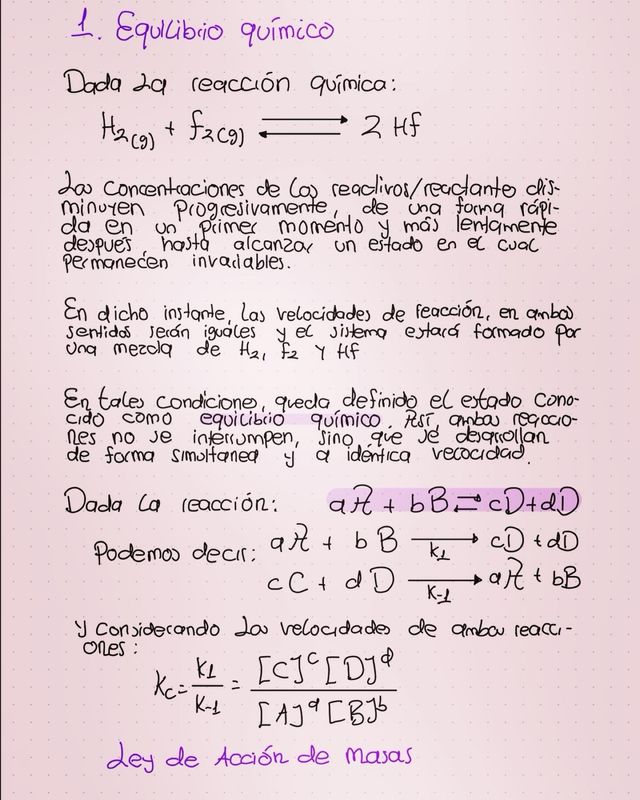 1. Equilibrio químico
Dada la reacción química:
H₂(g) + f₂(g) ⇌ 2 Hf
Las concentraciones de los reactivos/reactante dis-
minuyen progresivamente, de una forma rápi-
da en un primer momento y más lentamente
despues, hasta alcanzar un estado en el cual
permanecen invariables.
En dicho instante, las velocidades de reacción, en ambos
sentidos serán iguales y el sistema estará formado por
una mezcla de H₂, f₂ y Hf
En tales condiciones, queda definido el estado cono-
cido como equilibrio químico. Así, ambas reaccio-
nes no se interrumpen, sino que se desarrollan
de forma simultanea y a idéntica velocidad.
Dada la reacción: aA + bB ⇌ cD + dD
Podemos decir: aA + bB →K1 cD + dD
cC + dD →K-1 aA + bB
y considerando las velocidades de ambas reacci-
ones:
Kc = K1/K-1 = [C]ᶜ[D]ᵈ/[A]ᵃ[B]ᵇ
Ley de Acción de masas